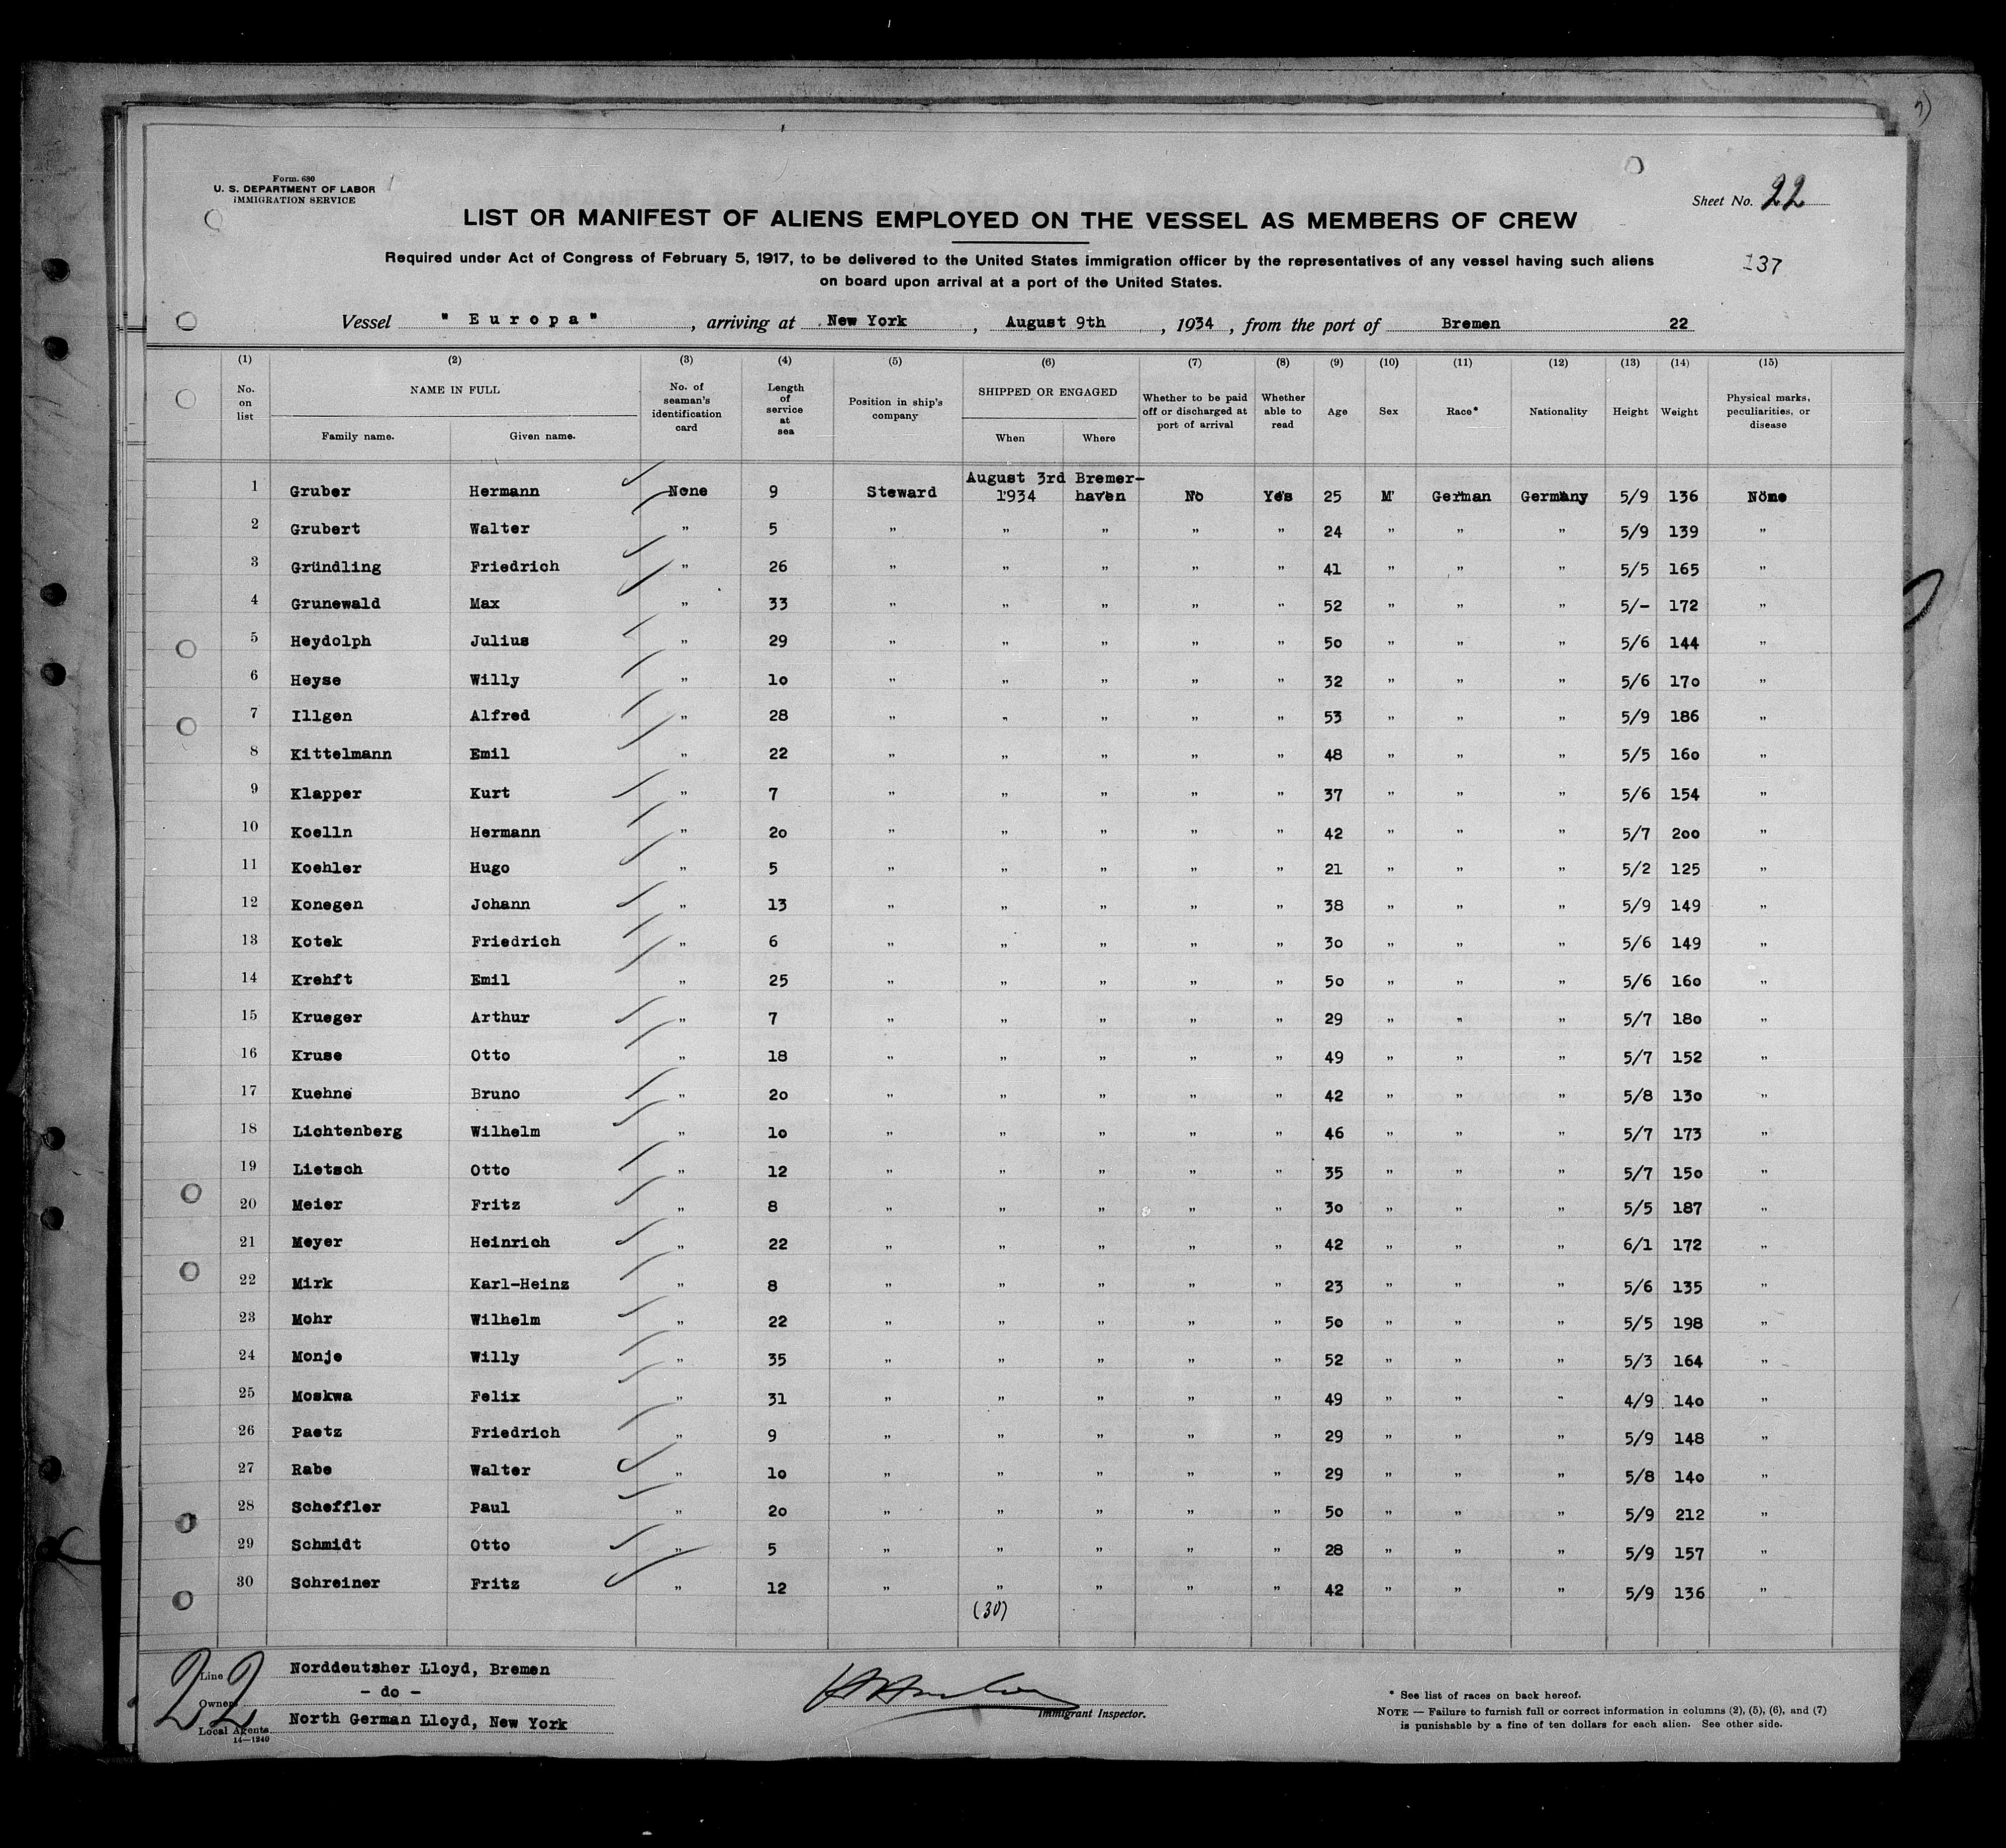 Form. 680
U. S. DEPARTMENT OF LABOR
IMMIGRATION SERVICE
Sheet No. 22
LIST OR MANIFEST OF ALIENS EMPLOYED ON THE VESSEL AS MEMBERS OF CREW
Required under Act of Congress of February 5, 1917, to be delivered to the United States immigration officer by the representatives of any vessel having such aliens
on board upon arrival at a port of the United States.
137
Vessel " E u r o p a " , arriving at New York , August 9th , 1934 , from the port of Bremen 22
(1) (2) (3) (4) (5) (6) (7) (8) (9) (10) (11) (12) (13) (14) (15)
No. on list NAME IN FULL Family name. Given name. No. of seaman's identification card Length of service at sea Position in ship's company SHIPPED OR ENGAGED When Where Whether to be paid off or discharged at port of arrival Whether able to read Age Sex Race* Nationality Height Weight Physical marks, peculiarities, or disease
1 Gruber Hermann None 9 Steward August 3rd 1934 Bremer-haven No Yes 25 M German Germany 5/9 136 None
2 Grubert Walter " 5 " " " " " 24 " " " 5/9 139 "
3 Gründling Friedrich " 26 " " " " " 41 " " " 5/5 165 "
4 Grunewald Max " 33 " " " " " 52 " " " 5/- 172 "
5 Heydolph Julius " 29 " " " " " 50 " " " 5/6 144 "
6 Heyse Willy " 10 " " " " " 32 " " " 5/6 170 "
7 Illgen Alfred " 28 " " " " " 53 " " " 5/9 186 "
8 Kittelmann Emil " 22 " " " " " 48 " " " 5/5 160 "
9 Klapper Kurt " 7 " " " " " 37 " " " 5/6 154 "
10 Koelln Hermann " 20 " " " " " 42 " " " 5/7 200 "
11 Koehler Hugo " 5 " " " " " 21 " " " 5/2 125 "
12 Konegen Johann " 13 " " " " " 38 " " " 5/9 149 "
13 Kotek Friedrich " 6 " " " " " 30 " " " 5/6 149 "
14 Krehft Emil " 25 " " " " " 50 " " " 5/6 160 "
15 Krueger Arthur " 7 " " " " " 29 " " " 5/7 180 "
16 Kruse Otto " 18 " " " " " 49 " " " 5/7 152 "
17 Kuehne Bruno " 20 " " " " " 42 " " " 5/8 130 "
18 Lichtenberg Wilhelm " 10 " " " " " 46 " " " 5/7 173 "
19 Lietsch Otto " 12 " " " " " 35 " " " 5/7 150 "
20 Meier Fritz " 8 " " " " " 30 " " " 5/5 187 "
21 Meyer Heinrich " 22 " " " " " 42 " " " 6/1 172 "
22 Mirk Karl-Heinz " 8 " " " " " 23 " " " 5/6 135 "
23 Mohr Wilhelm " 22 " " " " " 50 " " " 5/5 198 "
24 Monje Willy " 35 " " " " " 52 " " " 5/3 164 "
25 Moskwa Felix " 31 " " " " " 49 " " " 4/9 140 "
26 Paetz Friedrich " 9 " " " " " 29 " " " 5/9 148 "
27 Rabe Walter " 10 " " " " " 29 " " " 5/8 140 "
28 Scheffler Paul " 20 " " " " " 50 " " " 5/9 212 "
29 Schmidt Otto " 5 " " " " " 28 " " " 5/9 157 "
30 Schreiner Fritz " 12 " " " " " 42 " " " 5/9 136 "
(30)
22
Line Norddeutsher Lloyd, Bremen
Owners - do -
Local Agents North German Lloyd, New York
14—1240
Immigrant Inspector.
* See list of races on back hereof.
NOTE — Failure to furnish full or correct information in columns (2), (5), (6), and (7)
is punishable by a fine of ten dollars for each alien. See other side.